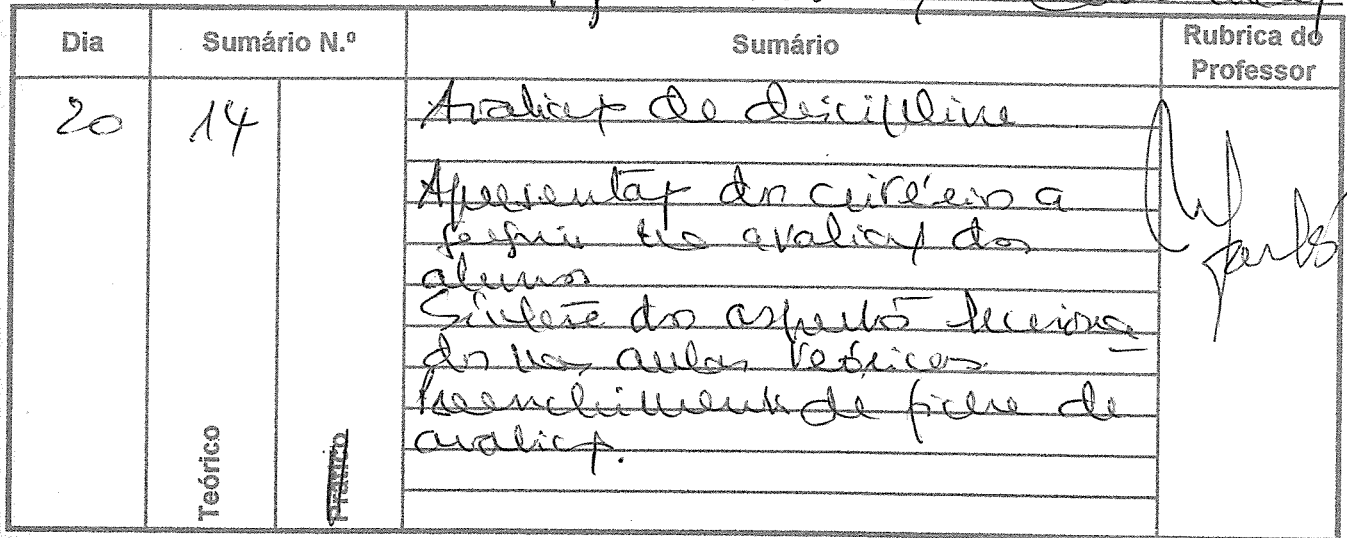 Dia Sumário N.º Sumário Rubrica do Professor
20 14 Avaliação da disciplina
Apresentação dos critérios a
seguir na avaliação dos
alunos
Síntese dos aspectos lecciona-
dos nas aulas teóricas.
Preenchimento da ficha de
avaliação.
Teórico Prático